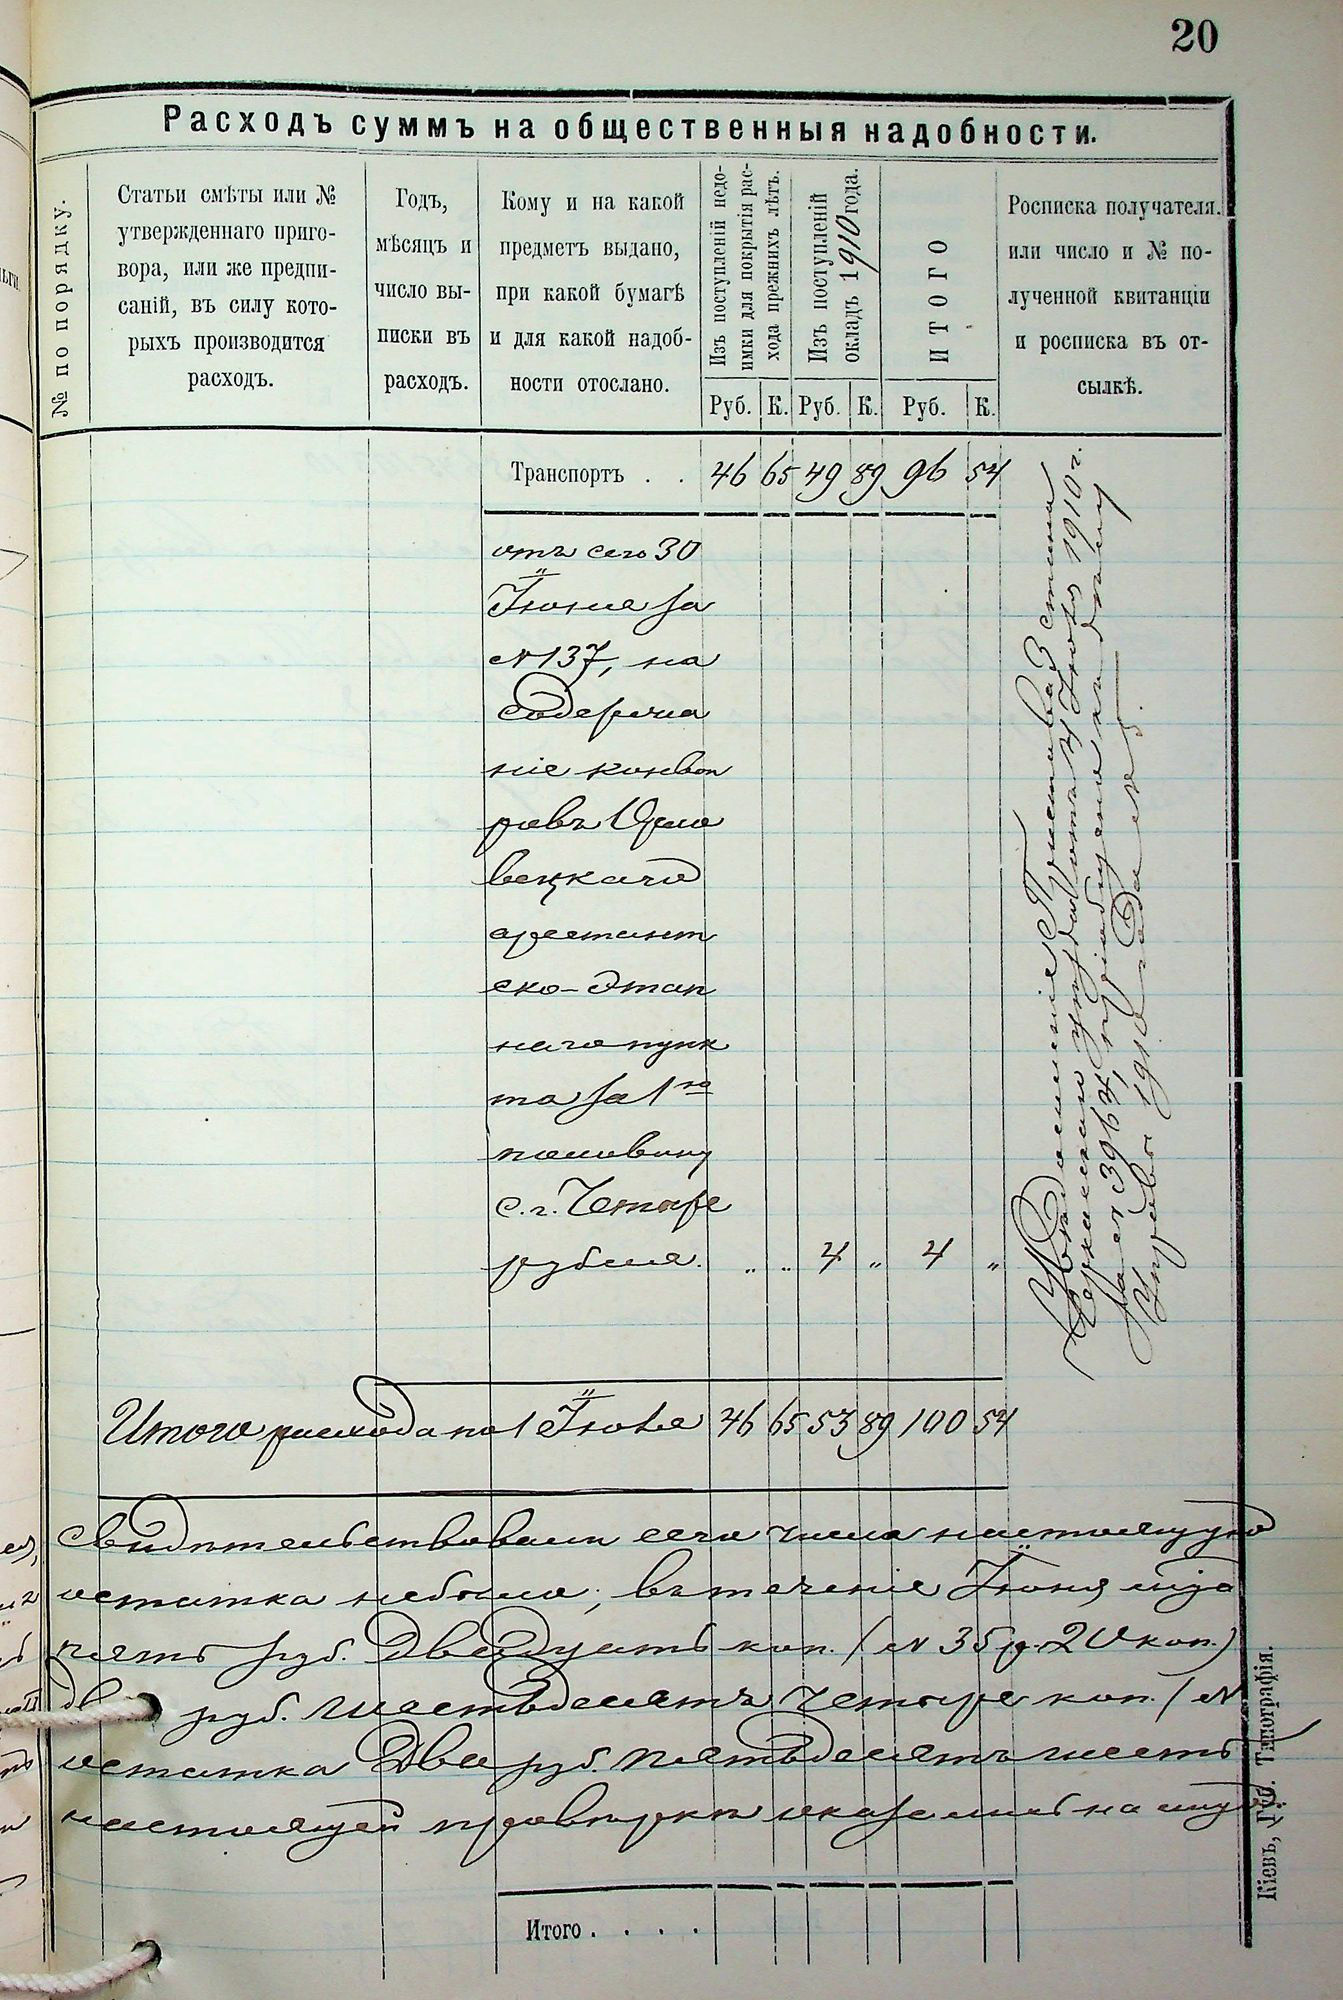 20
Расходъ суммъ на общественныя надобности.
№ по порядку.
Статьи смѣты или №
утвержденнаго приго-
вора, или же предпи-
саній, въ силу кото-
рыхъ производится
расходъ.
Годъ,
мѣсяцъ и
число вы-
писки въ
расходъ.
Кому и на какой
предметъ выдано,
при какой бумагѣ
и для какой надоб-
ности отослано.
Изъ поступленій недо-
имки для покрытія рас-
хода прежнихъ лѣтъ.
Изъ поступленій
окладъ 1910 года.
ИТОГО
Росписка получателя.
или число и № по-
лученной квитанціи
и росписка въ от-
сылкѣ.
Руб. К. Руб. К. Руб. К.
Транспортъ . . 46 65 49 89 96 54
отъ сего 30
Іюня за
№ 137, на
содержа
ніе конвои
ровъ Орло
вецкаго
арестант
ско-этап
наго пунк
та за 1ю
половину
с.г. Четыре
рубля. „ „ 4 „ 4 „
Увѣдомленіе Пристава 3 стана
Черкаскаго уѣзда отъ 4 Іюля 1910 г.
за № 3964, пріобщено къ дѣлу
Управы 1910 года №
Итого расхода по 1 Іюля 46 65 53 89 100 54
Свидѣтельствовали сего числа настоящую
остатка небыло; въ теченіе Іюня м-ца
пять руб. двадцать коп. (№ 35 р. 20 коп.)
два руб. шестьдесятъ четыре коп. (№
остатка два руб. пятьдесятъ шесть
настоящей провѣркѣ оказались на лицо
Итого . . . .
Кіевъ, Губ. Типографія.